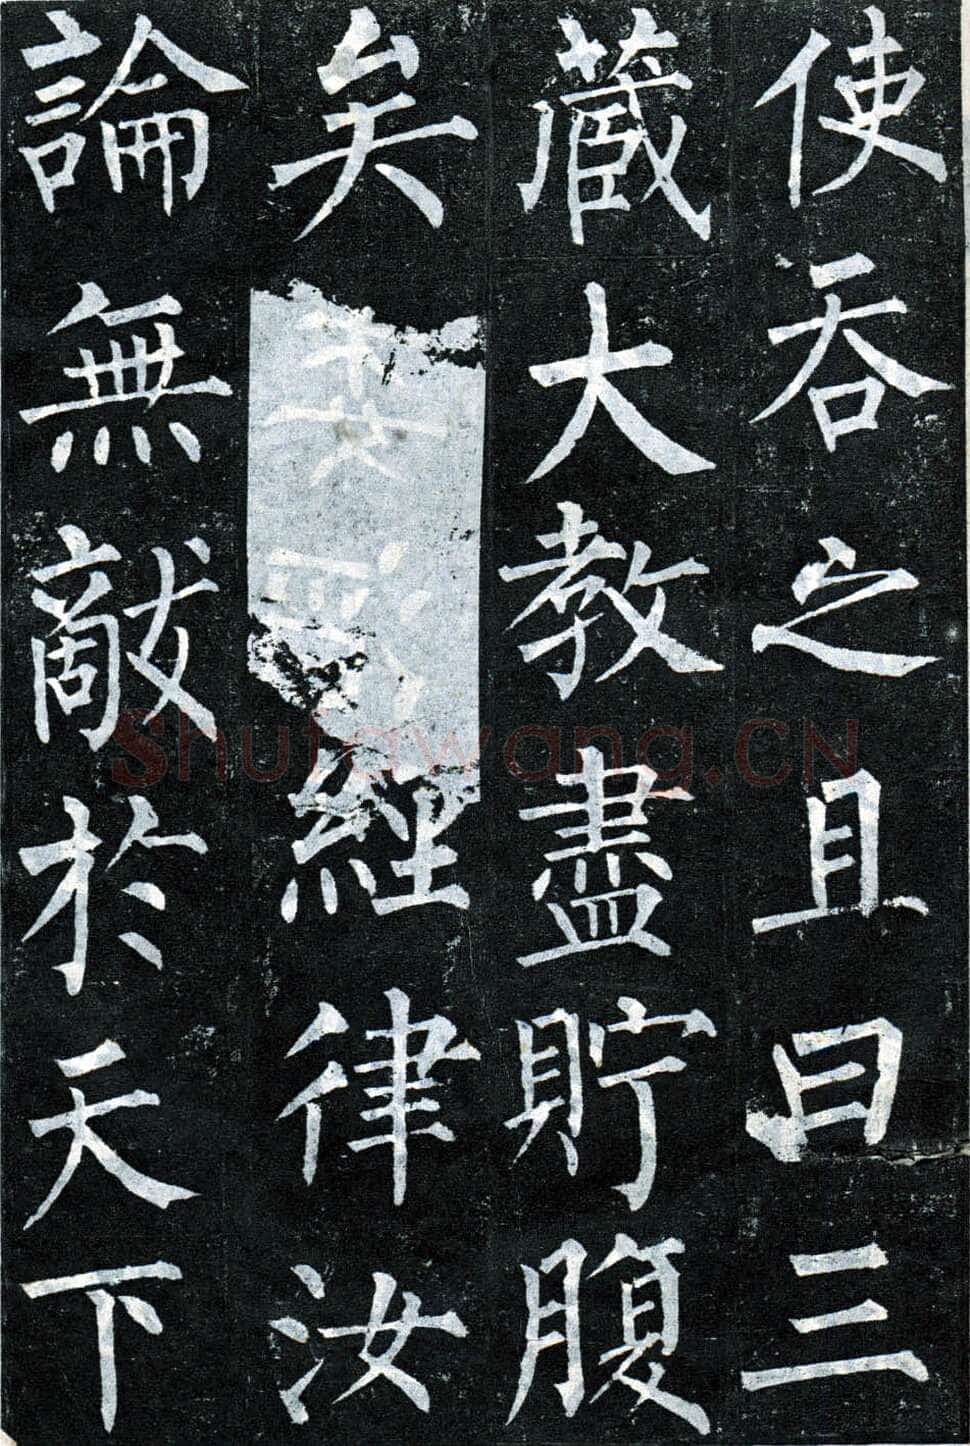 使吞之且曰三
藏大教盡貯腹
矣經律汝
論無敵於天下
Shufawang.CN